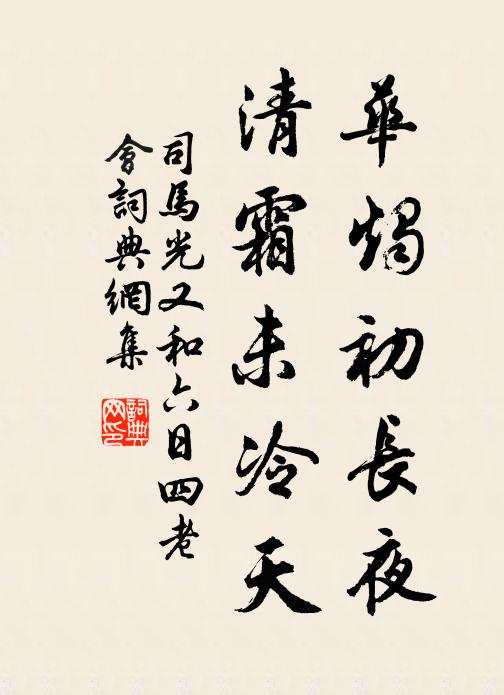 華燭初長夜
清霜未冷天
司馬光又和六日四老
會詞典網集
詞典
网印